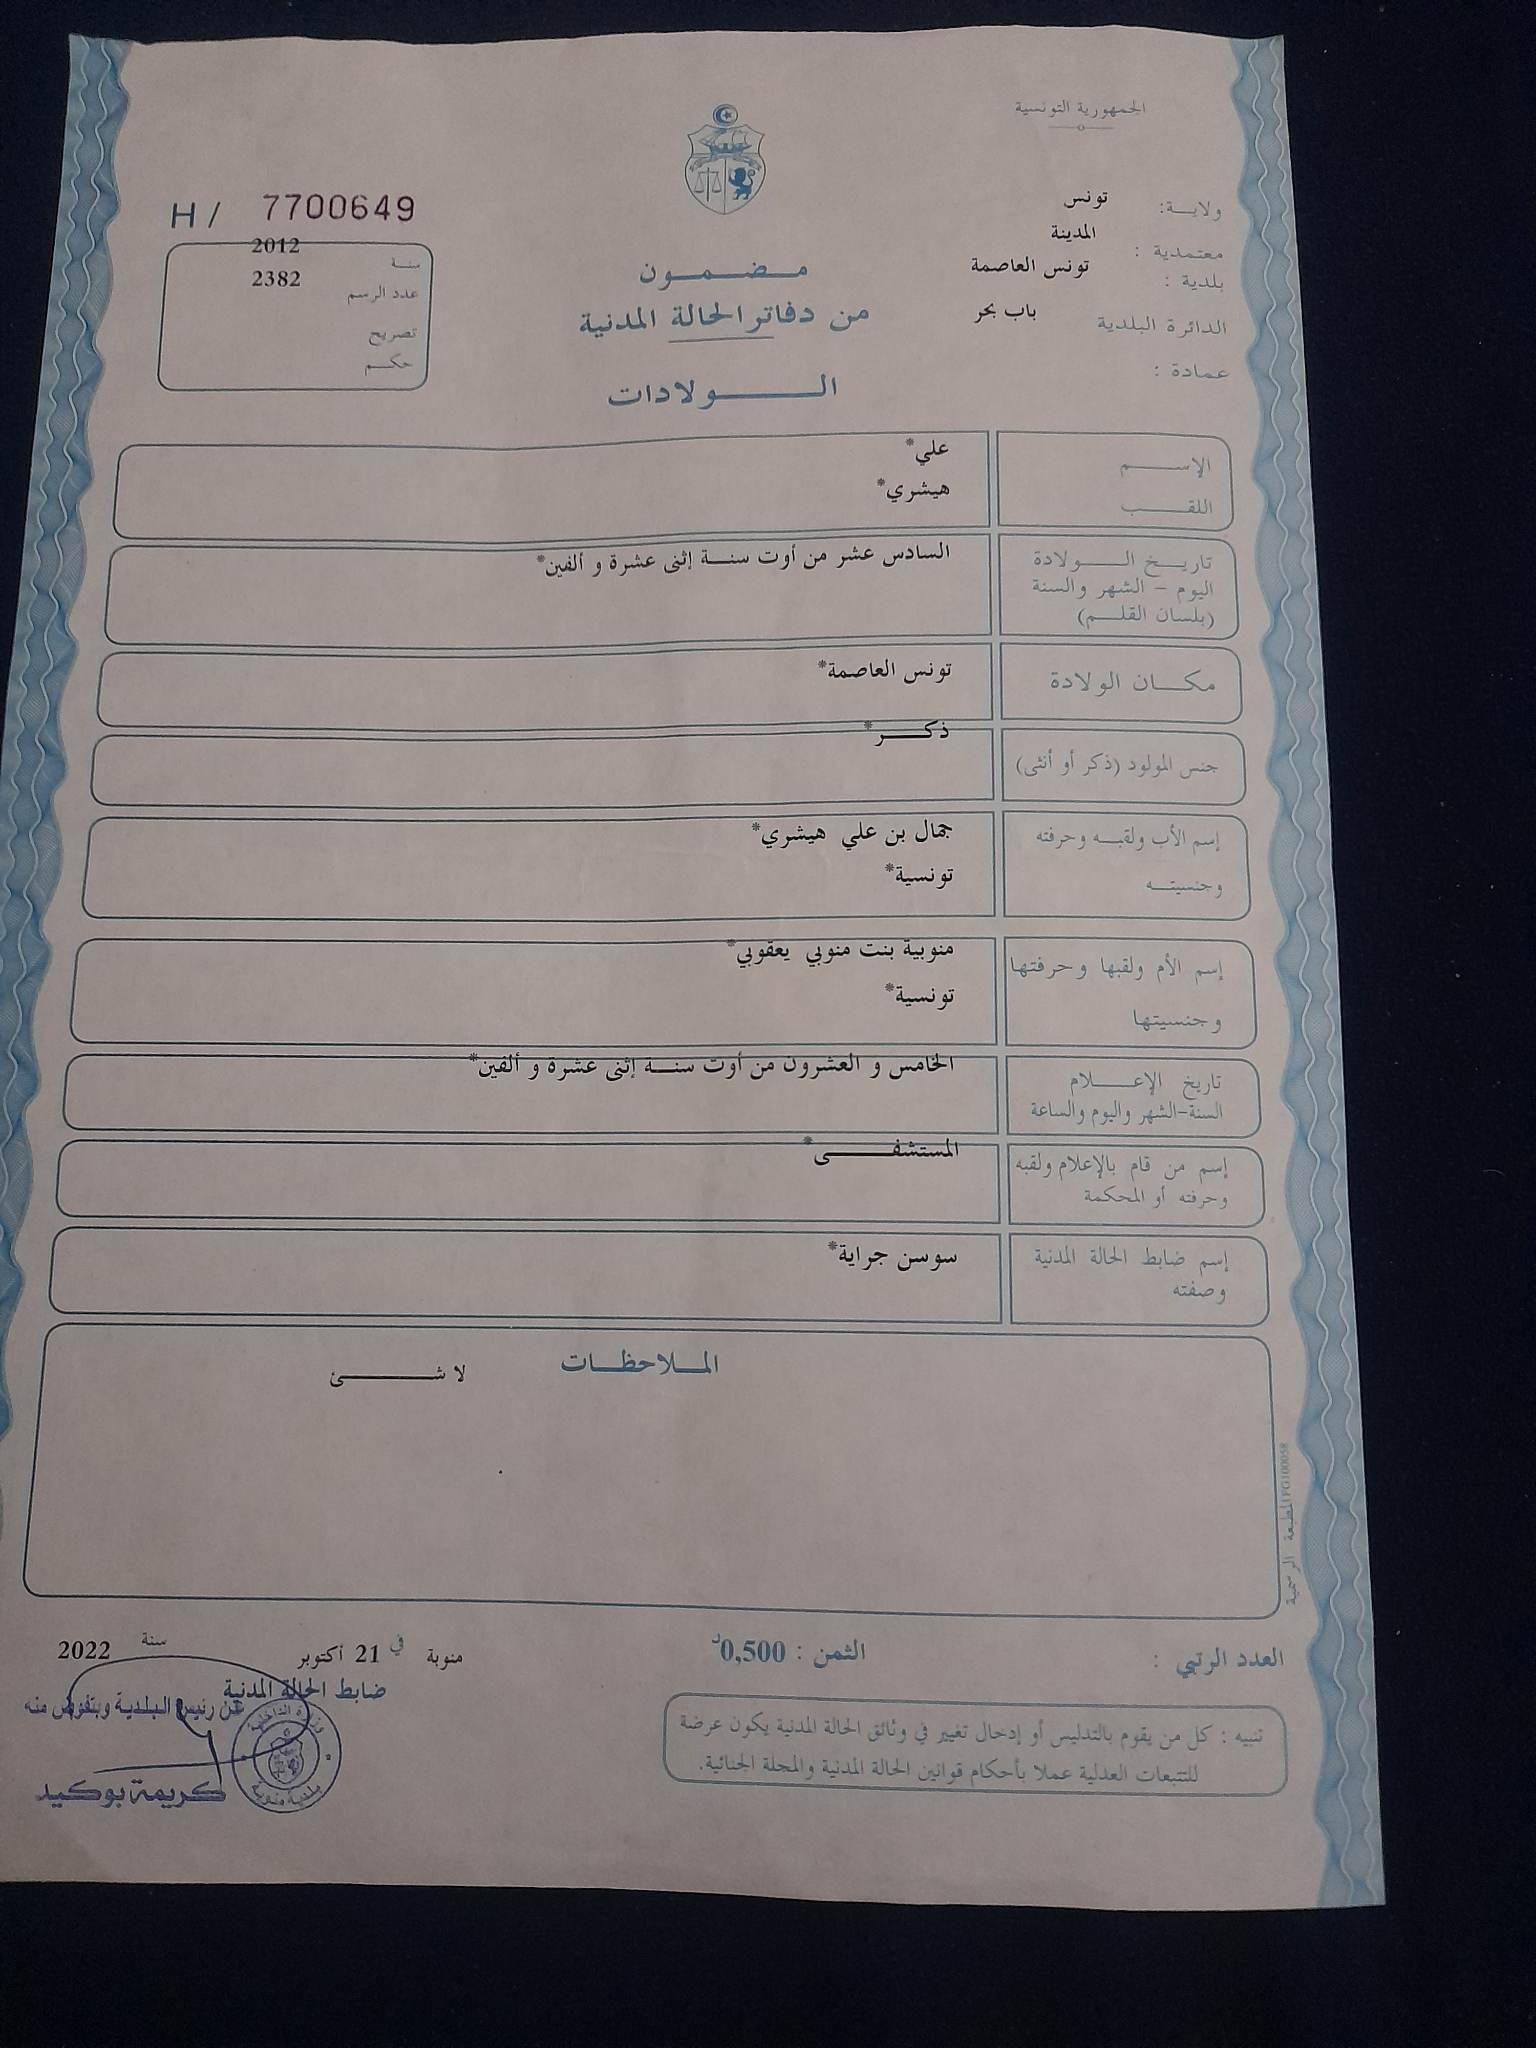 الجمهورية التونسية
ولاية: تونس
معتمدية : المدينة
بلدية : تونس العاصمة
الدائرة البلدية باب بحر
عمادة :
H/ 7700649
سنة 2012
عدد الرسم 2382
تصريح
حكم
مضمون
من دفاتر الحالة المدنية
الولادات
الإسم علي*
اللقب هيشري*
تاريخ الولادة السادس عشر من أوت سنة إثنى عشرة و ألفين*
اليوم - الشهر والسنة
(بلسان القلم)
مكان الولادة تونس العاصمة*
جنس المولود (ذكر أو أنثى) ذكر*
إسم الأب ولقبه وحرفته جمال بن علي هيشري*
وجنسيته تونسية*
إسم الأم ولقبها وحرفتها منوبية بنت منوبي يعقوبي*
وجنسيتها تونسية*
تاريخ الإعلام الخامس و العشرون من أوت سنة إثنى عشرة و ألفين*
السنة-الشهر واليوم والساعة
إسم من قام بالإعلام ولقبه المستشفى*
وحرفته أو المحكمة
إسم ضابط الحالة المدنية سوسن جراية*
وصفته
الملاحظات
لا شئ
المطبعة الرسمية FG100058
العدد الرتبي :
الثمن : 0,500د
منوبة في 21 أكتوبر سنة 2022
ضابط الحالة المدنية
عن رئيس البلدية وبتفويض منه
وزارة الداخلية
بلدية منوبة
كريمة بوكيد
تنبيه : كل من يقوم بالتدليس أو إدخال تغيير في وثائق الحالة المدنية يكون عرضة
للتتبعات العدلية عملا بأحكام قوانين الحالة المدنية والمجلة الجنائية.